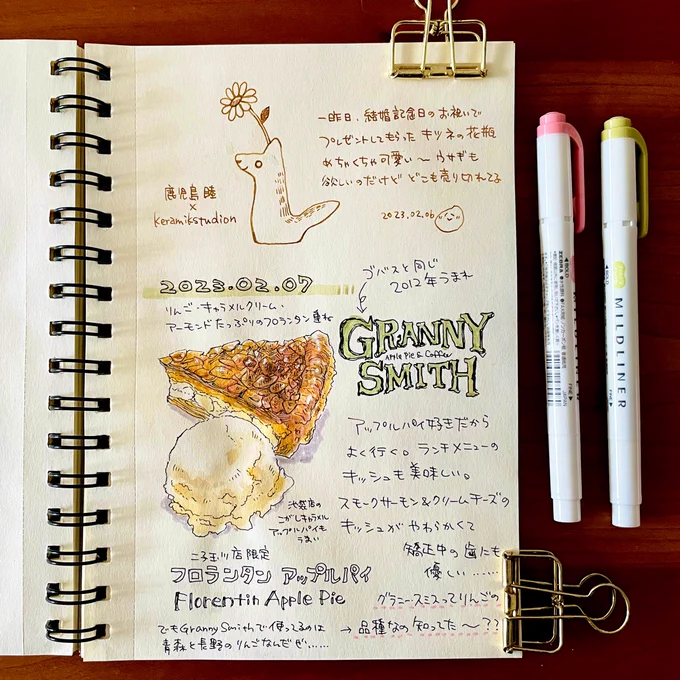 一昨日、結婚記念日のお祝いで
プレゼントしてもらった キツネの花瓶
めちゃくちゃ可愛い〜 ウサギも
欲しいのだけど どこも売り切れてる
2023.02.06
鹿児島睦
×
Keramikstudion
2023.02.07
ゴバスと同じ
2012年うまれ
りんご・キャラメルクリーム・
アーモンドたっぷりのフロランタン重ね
GRANNY
Apple Pie & Coffee
SMITH
アップルパイ好きだから
よく行く。ランチメニューの
キッシュも美味しい。
スモークサーモン&クリームチーズの
キッシュがやわらかくて
矯正中の歯にも
優しい……
池袋店の
こがしキャラメル
アップルパイも
うまい
二子玉川店限定
フロランタン アップルパイ
Florentin Apple Pie
グラニースミスってりんごの
→ 品種なの知ってた〜??
でもGranny Smithで使ってるのは
青森と長野のりんごなんだぜ……
BOLD
ZEBRA
JAPAN
FINE
BOLD
MILDLINER
FINE